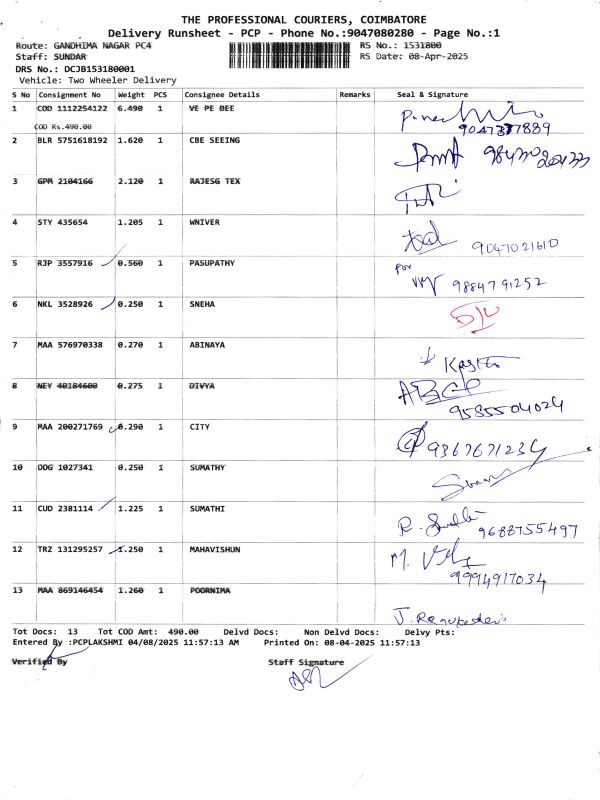 THE PROFESSIONAL COURIERS, COIMBATORE
Delivery Runsheet - PCP - Phone No.:9047080280 - Page No.:1
Route: GANDHIMA NAGAR PC4 RS No.: 1531800
Staff: SUNDAR RS Date: 08-Apr-2025
DRS No.: DCJB153180001
Vehicle: Two Wheeler Delivery
S No Consignment No Weight PCS Consignee Details Remarks Seal & Signature
1 COD 1112254122 6.490 1 VE PE DEE
COD Rs.490.00
2 BLR 5751618192 1.620 1 CBE SEEING
3 GPM 2104166 2.120 1 RAJESG TEX
4 STY 435654 1.205 1 WNIVER
9047021610
5 RJP 3557916 0.560 1 PASUPATHY for
9884791252
6 NKL 3528926 0.250 1 SNEHA
7 MAA 576970338 0.270 1 ABINAYA
8 NEY 40184600 0.275 1 DIVYA ABCP
9585504024
9 MAA 200271769 0.290 1 CITY
9367671234
10 DDG 1027341 0.250 1 SUMATHY
11 CUD 2381114 1.225 1 SUMATHI
9688755497
12 TRZ 131295257 1.250 1 MAHAVISHUN
9994917034
13 MAA 869146454 1.260 1 POORNIMA
Tot Docs: 13 Tot COD Amt: 490.00 Delvd Docs: Non Delvd Docs: Delvy Pts:
Entered By :PCPLAKSHMI 04/08/2025 11:57:13 AM Printed On: 08-04-2025 11:57:13
Verified By Staff Signature